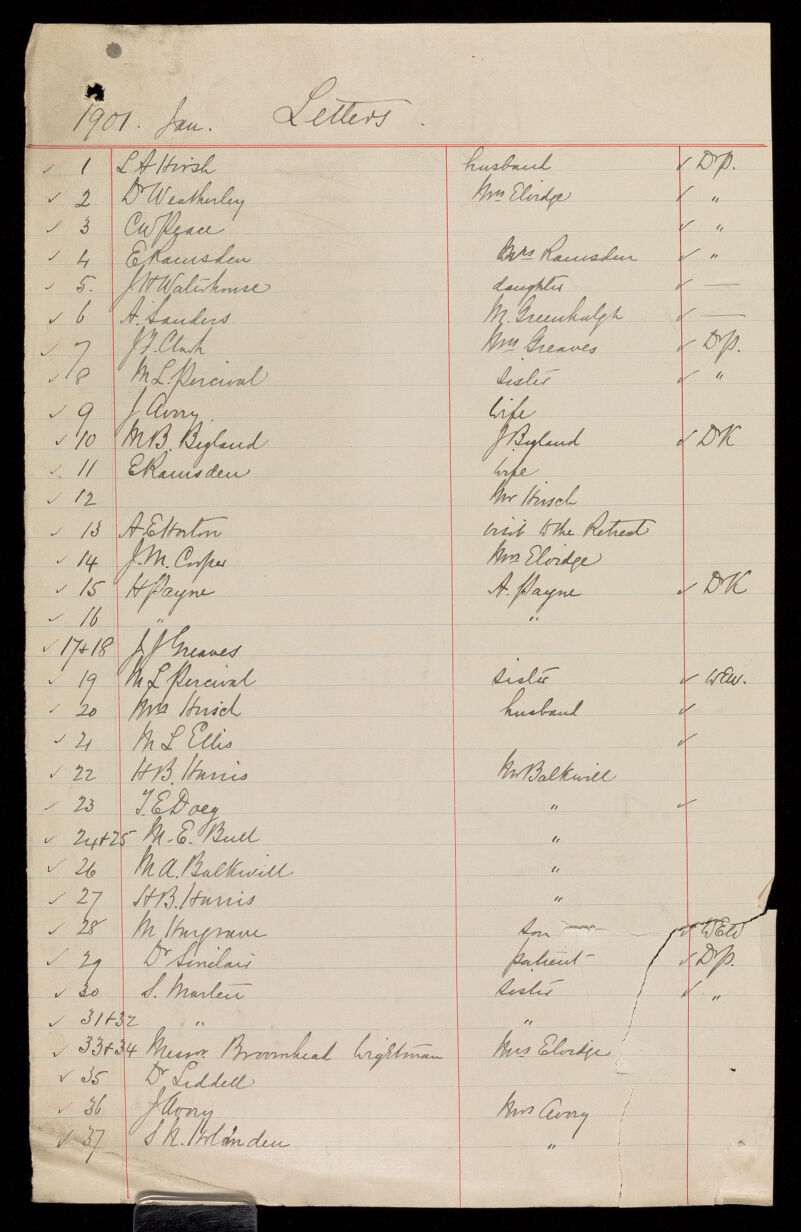 1901. Jan. Letters.
✓ 1 L A Hirsh husband ✓ Dr P.
✓ 2 Dr Weatherley Mrs Elvidge ✓ "
✓ 3 C W Peace ✓ "
✓ 4 E Ramsden Mrs Ramsden ✓ "
✓ 5. J H Waterhouse daughter ✓ —
✓ 6 A. Sanders M. Greenhalgh ✓ —
✓ 7 J. F. Clark Mrs Greaves ✓ Dr P.
✓ 8 M L. Percival sister ✓ "
✓ 9 J Avory wife
✓ 10 M B. Bigland J Bigland ✓ Dr K
✓ 11 E Ramsden wife
✓ 12 Mr Hirsch
✓ 13 A. E Horton visit to the Retreat
✓ 14 J. M. Cooper Mrs Elvidge
✓ 15 H Payne A. Payne ✓ Dr K
✓ 16 " "
✓ 17+18 J J Greaves
✓ 19 M L Percival sister ✓ WEW.
✓ 20 Mrs Hirsch husband ✓
✓ 21 M L Ellis ✓
✓ 22 H B. Harris Mr Balkwill
✓ 23 T. E Doeg " ✓
✓ 24+25 M. E. Bull "
✓ 26 M A. Balkwill "
✓ 27 H B. Harris "
✓ 28 M Hargrave son ✓ WEW
✓ 29 Dr Sinclair patient ✓ Dr P.
✓ 30 S. Marten sister ✓ "
✓ 31+32 " "
✓ 33+34 Messrs Broomhead Wightman Mrs Elvidge
✓ 35 Dr Liddell
✓ 36 J Avory Mrs Avory
✓ 37 S N. "